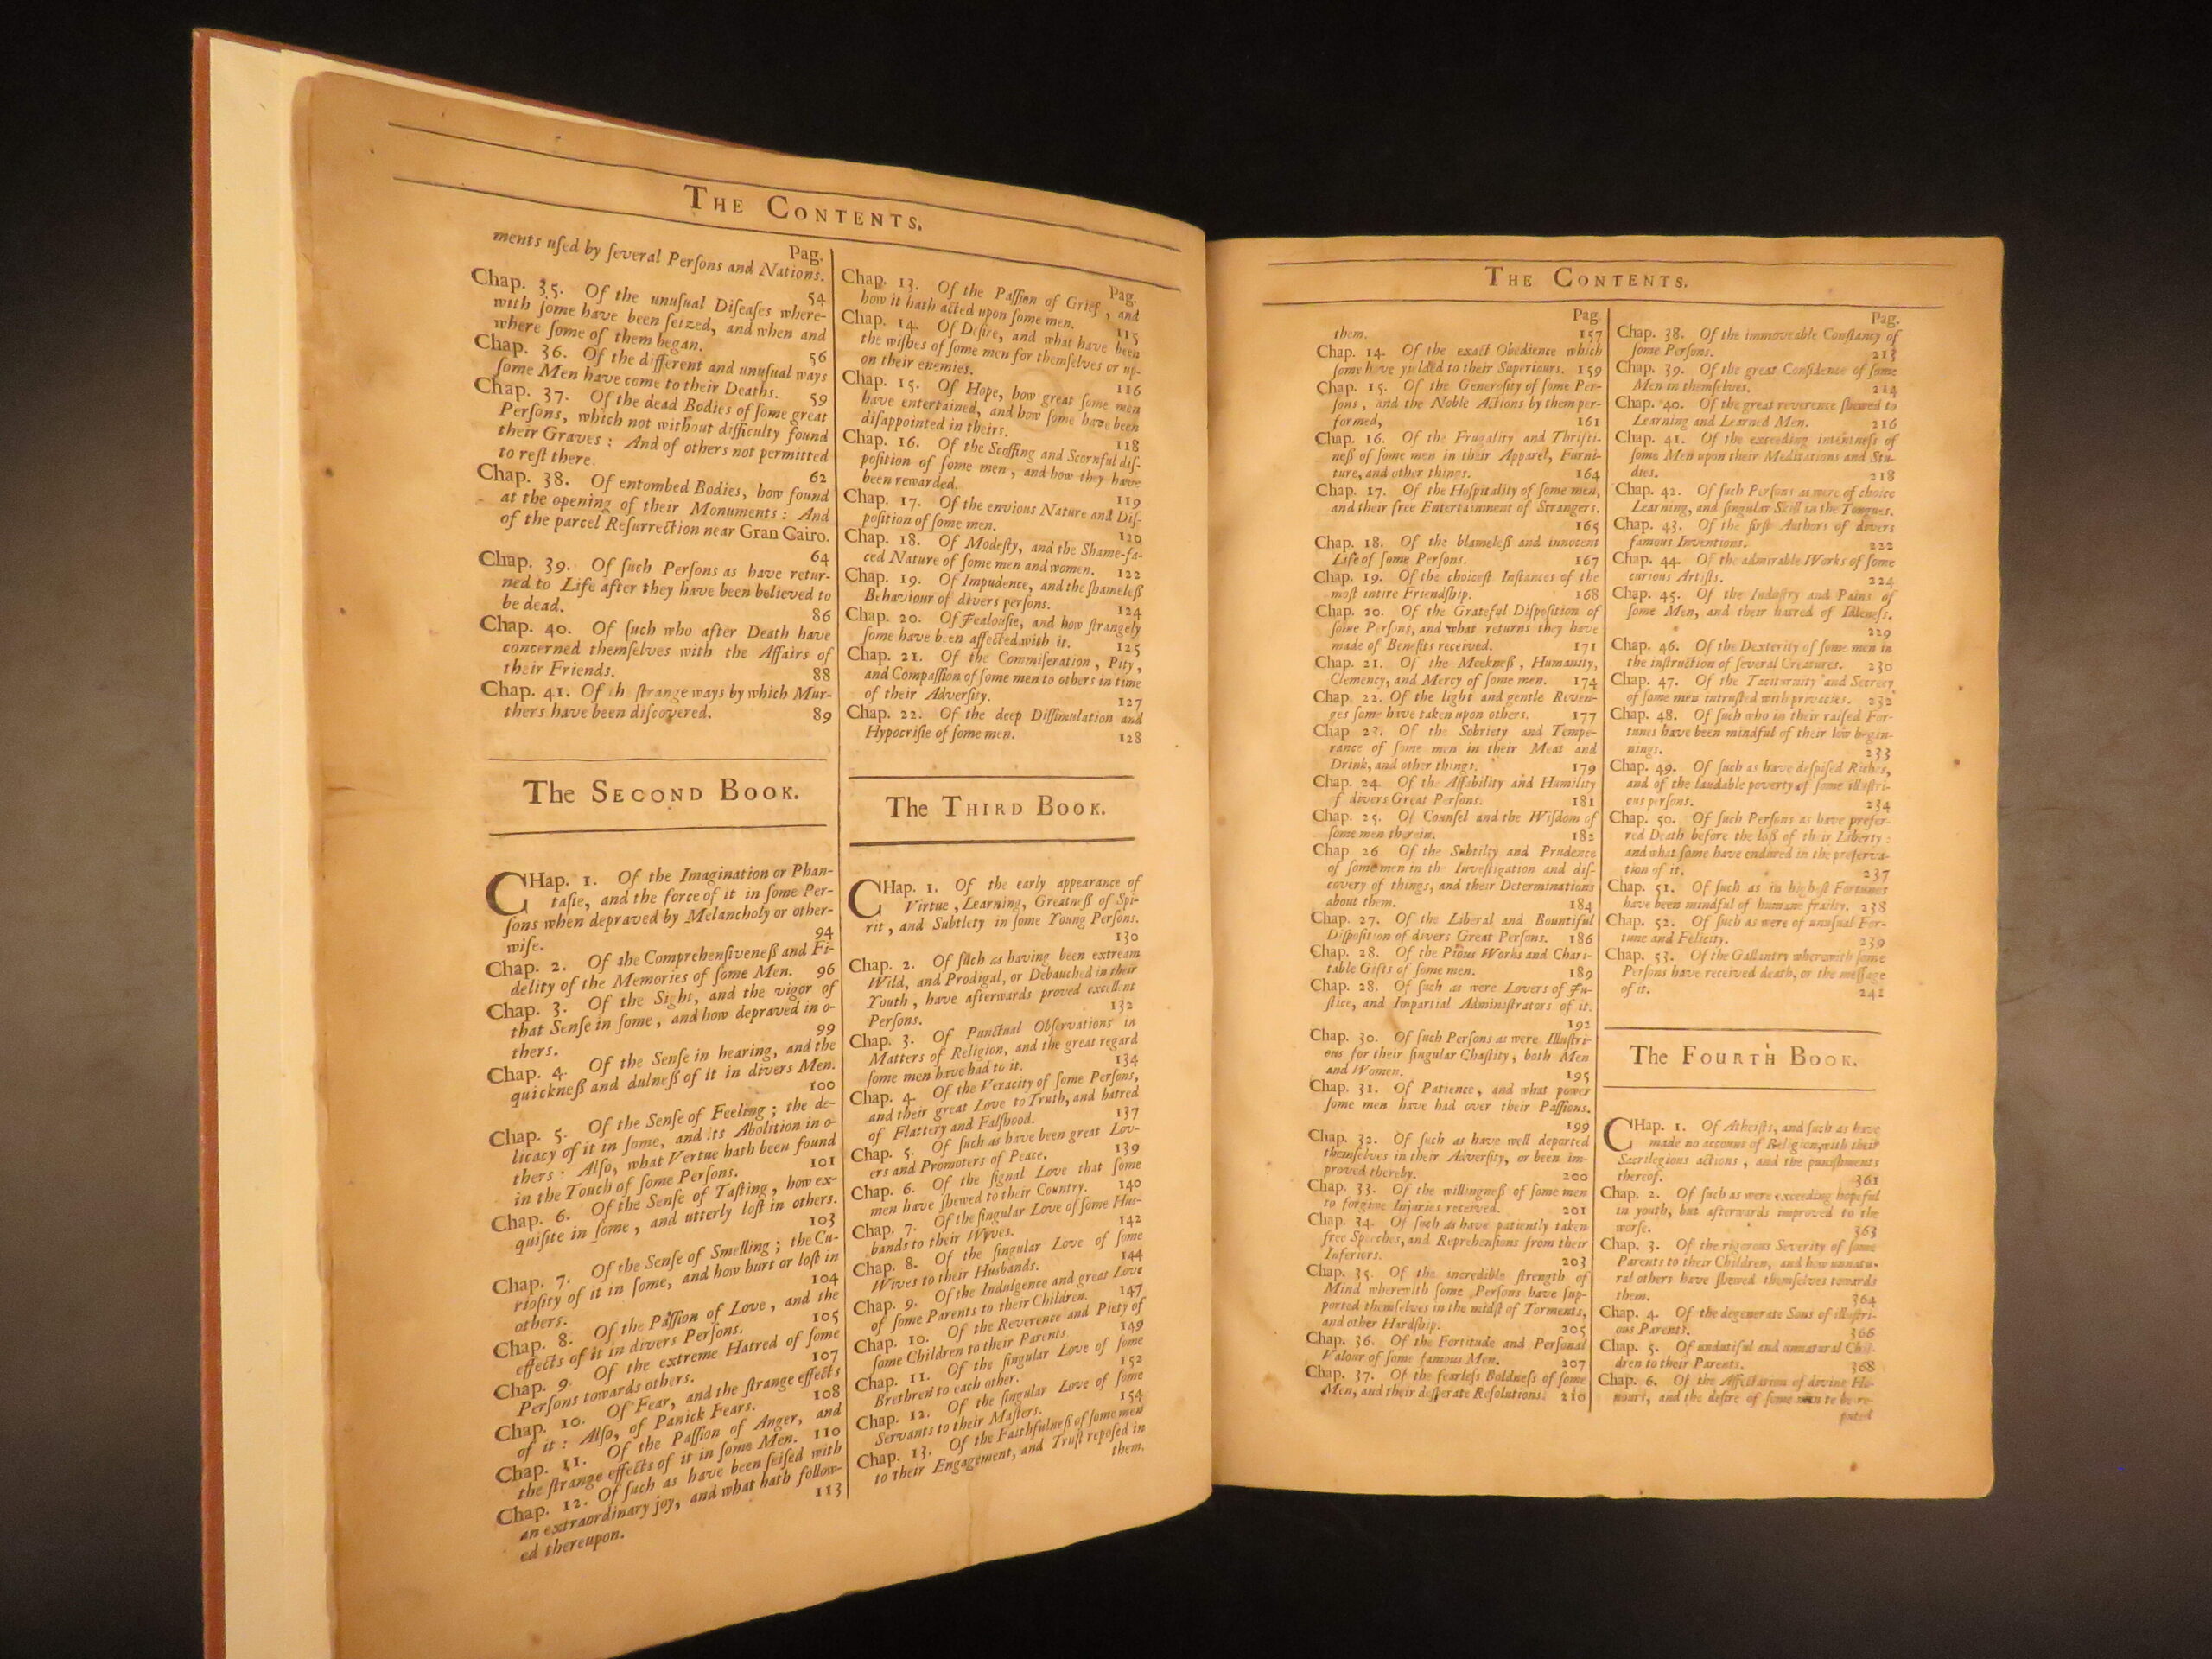 THE CONTENTS.
Pag.
ments uſed by ſeveral Perſons and Nations.
54
Chap. 35. Of the unuſual Diſeaſes where-
with ſome have been ſeized, and when and
where ſome of them began. 56
Chap. 36. Of the different and unuſual ways
ſome Men have come to their Deaths. 59
Chap. 37. Of the dead Bodies of ſome great
Perſons, which not without difficulty found
their Graves: And of others not permitted
to reſt there. 62
Chap. 38. Of entombed Bodies, how found
at the opening of their Monuments: And
of the parcel Reſurrection near Gran Cairo.
64
Chap. 39. Of ſuch Perſons as have retur-
ned to Life after they have been believed to
be dead. 86
Chap. 40. Of ſuch who after Death have
concerned themſelves with the Affairs of
their Friends. 88
Chap. 41. Of th ſtrange ways by which Mur-
thers have been diſcovered. 89
The SECOND BOOK.
CHap. 1. Of the Imagination or Phan-
taſie, and the force of it in ſome Per-
ſons when depraved by Melancholy or other-
wiſe. 94
Chap. 2. Of the Comprehenſiveneß and Fi-
delity of the Memories of ſome Men. 96
Chap. 3. Of the Sight, and the vigor of
that Senſe in ſome, and how depraved in o-
thers. 99
Chap. 4. Of the Senſe in hearing, and the
quickneß and dulneß of it in divers Men.
100
Chap. 5. Of the Senſe of Feeling; the de-
licacy of it in ſome, and its Abolition in o-
thers: Alſo, what Vertue hath been found
in the Touch of ſome Perſons. 101
Chap. 6. Of the Senſe of Taſting, how ex-
quiſite in ſome, and utterly loſt in others.
103
Chap. 7. Of the Senſe of Smelling; the Cu-
rioſity of it in ſome, and how hurt or loſt in
others. 104
Chap. 8. Of the Paſſion of Love, and the
effects of it in divers Perſons. 105
Chap. 9. Of the extreme Hatred of ſome
Perſons towards others. 107
Chap. 10. Of Fear, and the ſtrange effects
of it: Alſo, of Panick Fears. 108
Chap. 11. Of the Paſſion of Anger, and
the ſtrange effects of it in ſome Men. 110
Chap. 12. Of ſuch as have been ſeiſed with
an extraordinary joy, and what hath follow-
ed thereupon. 113
Pag.
Chap. 13. Of the Paſſion of Grief, and
how it hath acted upon ſome men. 115
Chap. 14. Of Deſire, and what have been
the wiſhes of ſome men for themſelves or up-
on their enemies. 116
Chap. 15. Of Hope, how great ſome men
have entertained, and how ſome have been
diſappointed in theirs. 118
Chap. 16. Of the Scoffing and Scornful diſ-
poſition of ſome men, and how they have
been rewarded. 119
Chap. 17. Of the envious Nature and Diſ-
poſition of ſome men. 120
Chap. 18. Of Modeſty, and the Shame-fa-
ced Nature of ſome men and women. 122
Chap. 19. Of Impudence, and the ſhameleß
Behaviour of divers perſons. 124
Chap. 20. Of Jealouſie, and how ſtrangely
ſome have b en affected with it. 125
Chap. 21. Of the Commiſeration, Pity,
and Compaſſion of ſome men to others in time
of their Adverſity. 127
Chap. 22. Of the deep Diſſimulation and
Hypocriſie of ſome men. 128
The THIRD BOOK.
CHap. 1. Of the early appearance of
Virtue, Learning, Greatneß of Spi-
rit, and Subtlety in ſome Young Perſons.
130
Chap. 2. Of ſuch as having been extream
Wild, and Prodigal, or Debauched in their
Youth, have afterwards proved excellent
Perſons. 132
Chap. 3. Of Punctual Obſervations in
Matters of Religion, and the great regard
ſome men have had to it. 134
Chap. 4. Of the Veracity of ſome Perſons,
and their great Love to Truth, and hatred
of Flattery and Falſhood. 137
Chap. 5. Of ſuch as have been great Lov-
ers and Promoters of Peace. 139
Chap. 6. Of the ſignal Love that ſome
men have ſhewed to their Country. 140
Chap. 7. Of the ſingular Love of ſome Hus-
bands to their Wyves. 142
Chap. 8. Of the ſingular Love of ſome
Wives to their Husbands. 144
Chap. 9. Of the Indulgence and great Love
of ſome Parents to their Children. 147
Chap. 10. Of the Reverence and Piety of
ſome Children to their Parents. 149
Chap. 11. Of the ſingular Love of ſome
Brethren to each other. 152
Chap. 12. Of the ſingular Love of ſome
Servants to their Maſters. 154
Chap. 13. Of the Faithfulneß of ſome men
to their Engagement, and Truſt repoſed in
them.
THE CONTENTS.
Pag
them. 157
Chap. 14. Of the exact Obedience which
ſome have yielded to their Superiours. 159
Chap. 15. Of the Generoſity of ſome Per-
ſons, and the Noble Actions by them per-
formed, 161
Chap. 16. Of the Frugality and Thrifti-
neß of ſome men in their Apparel, Furni-
ture, and other things. 164
Chap. 17. Of the Hoſpitality of ſome men,
and their free Entertainment of Strangers.
165
Chap. 18. Of the blameleß and innocent
Life of ſome Perſons. 167
Chap. 19. Of the choiceſt Inſtances of the
moſt intire Friendſhip. 168
Chap. 20. Of the Grateful Diſpoſition of
ſome Perſons, and what returns they have
made of Benefits received. 171
Chap. 21. Of the Meekneß, Humanity,
Clemency, and Mercy of ſome men. 174
Chap. 22. Of the light and gentle Reven-
ges ſome have taken upon others. 177
Chap 23. Of the Sobriety and Tempe-
rance of ſome men in their Meat and
Drink, and other things. 179
Chap. 24. Of the Affability and Humility
f divers Great Perſons. 181
Chap. 25. Of Counſel and the Wiſdom of
ſome men therein. 182
Chap 26 Of the Subtilty and Prudence
of ſome men in the Inveſtigation and diſ-
covery of things, and their Determinations
about them. 184
Chap. 27. Of the Liberal and Bountiful
Diſpoſition of divers Great Perſons. 186
Chap. 28. Of the Pious Works and Chari-
table Gifts of ſome men. 189
Chap. 28. Of ſuch as were Lovers of Ju-
ſtice, and Impartial Adminiſtrators of it.
192
Chap. 30. Of ſuch Perſons as were Illuſtri-
ous for their ſingular Chaſtity, both Men
and Women. 195
Chap. 31. Of Patience, and what power
ſome men have had over their Paſſions.
199
Chap. 32. Of ſuch as have well deported
themſelves in their Adverſity, or been im-
proved thereby. 200
Chap. 33. Of the willingneß of ſome men
to forgive Injuries received. 201
Chap. 34. Of ſuch as have patiently taken
free Speeches, and Reprehenſions from their
Inferiors. 203
Chap. 35. Of the incredible ſtrength of
Mind wherewith ſome Perſons have ſup-
ported themſelves in the midſt of Torments,
and other Hardſhip. 205
Chap. 36. Of the Fortitude and Perſonal
Valour of ſome famous Men. 207
Chap. 37. Of the fearleß Boldneß of ſome
Men, and their deſperate Reſolutions. 210
Pag.
Chap. 38. Of the immoveable Conſtancy of
ſome Perſons. 213
Chap. 39. Of the great Confidence of ſome
Men in themſelves. 214
Chap. 40. Of the great reverence ſhewed to
Learning and Learned Men. 216
Chap. 41. Of the exceeding intentneſs of
ſome Men upon their Meditations and Stu-
dies. 218
Chap. 42. Of ſuch Perſons as were of choice
Learning, and ſingular Skill in the Tongues.
Chap. 43. Of the firſt Authors of divers
famous Inventions. 222
Chap. 44. Of the admirable Works of ſome
curious Artiſts. 224
Chap. 45. Of the Induſtry and Pains of
ſome Men, and their hatred of Idleneſs.
229
Chap. 46. Of the Dexterity of ſome men in
the inſtruction of ſeveral Creatures. 230
Chap. 47. Of the Taciturnity and Secrecy
of ſome men intruſted with privacies. 232
Chap. 48. Of ſuch who in their raiſed For-
tunes have been mindful of their low begin-
nings. 233
Chap. 49. Of ſuch as have deſpiſed Riches,
and of the laudable poverty of ſome illuſtri-
ous perſons. 234
Chap. 50. Of ſuch Perſons as have prefer-
red Death before the loſs of their Liberty:
and what ſome have endured in the preſerva-
tion of it. 237
Chap. 51. Of ſuch as in higheſt Fortunes
have been mindful of humane frailty. 238
Chap. 52. Of ſuch as were of unuſual For-
tune and Felicity. 239
Chap. 53. Of the Gallantry wherewith ſome
Perſons have received death, or the meſſage
of it. 241
The FOURTH BOOK.
CHap. 1. Of Atheiſts, and ſuch as have
made no account of Religion, with their
Sacrilegious actions, and the puniſhments
thereof. 361
Chap. 2. Of ſuch as were exceeding hopeful
in youth, but afterwards improved to the
worſe. 363
Chap. 3. Of the rigorous Severity of ſome
Parents to their Children, and how unnatu-
ral others have ſhewed themſelves towards
them. 364
Chap. 4. Of the degenerate Sons of illuſtri-
ous Parents. 366
Chap. 5. Of undutiful and unnatural Chil-
dren to their Parents. 368
Chap. 6. Of the Affectation of divine Ho-
nours, and the deſire of ſome men to be re-
puted